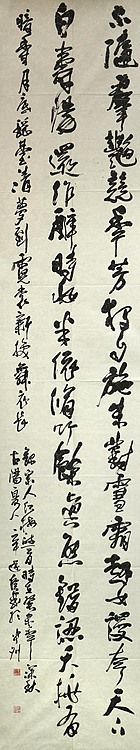 不隨羣艷競年芳獨自施朱對雪霜越女漫夸天下
白壽陽還作醉時妝半依脩竹餘真態錯認夭桃有
暗香月底瑶臺清夢到霓裳新換舞衣長
錄宋人紅梅詩一首時